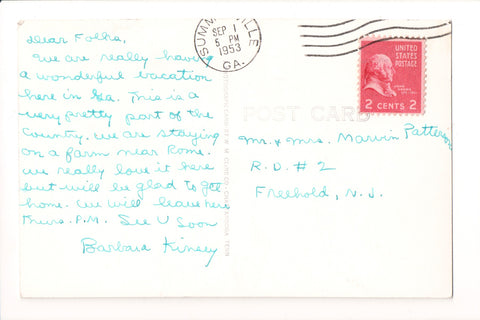 Dear Folks,
We are really having
a wonderful vacation
here in Ga. This is a
very pretty part of the
Country. We are staying
on a farm near Rome.
We really love it here
but will be glad to get
home. We will leave here
Thurs. P.M. See U Soon
Barbara Kinsey
SUMMERVILLE
SEP 1
5 PM
1953
GA.
UNITED
STATES
POSTAGE
2 CENTS 2
POST CARD
Mr. & Mrs. Marvin Patterson
R.D. # 2
Freehold, N.J.